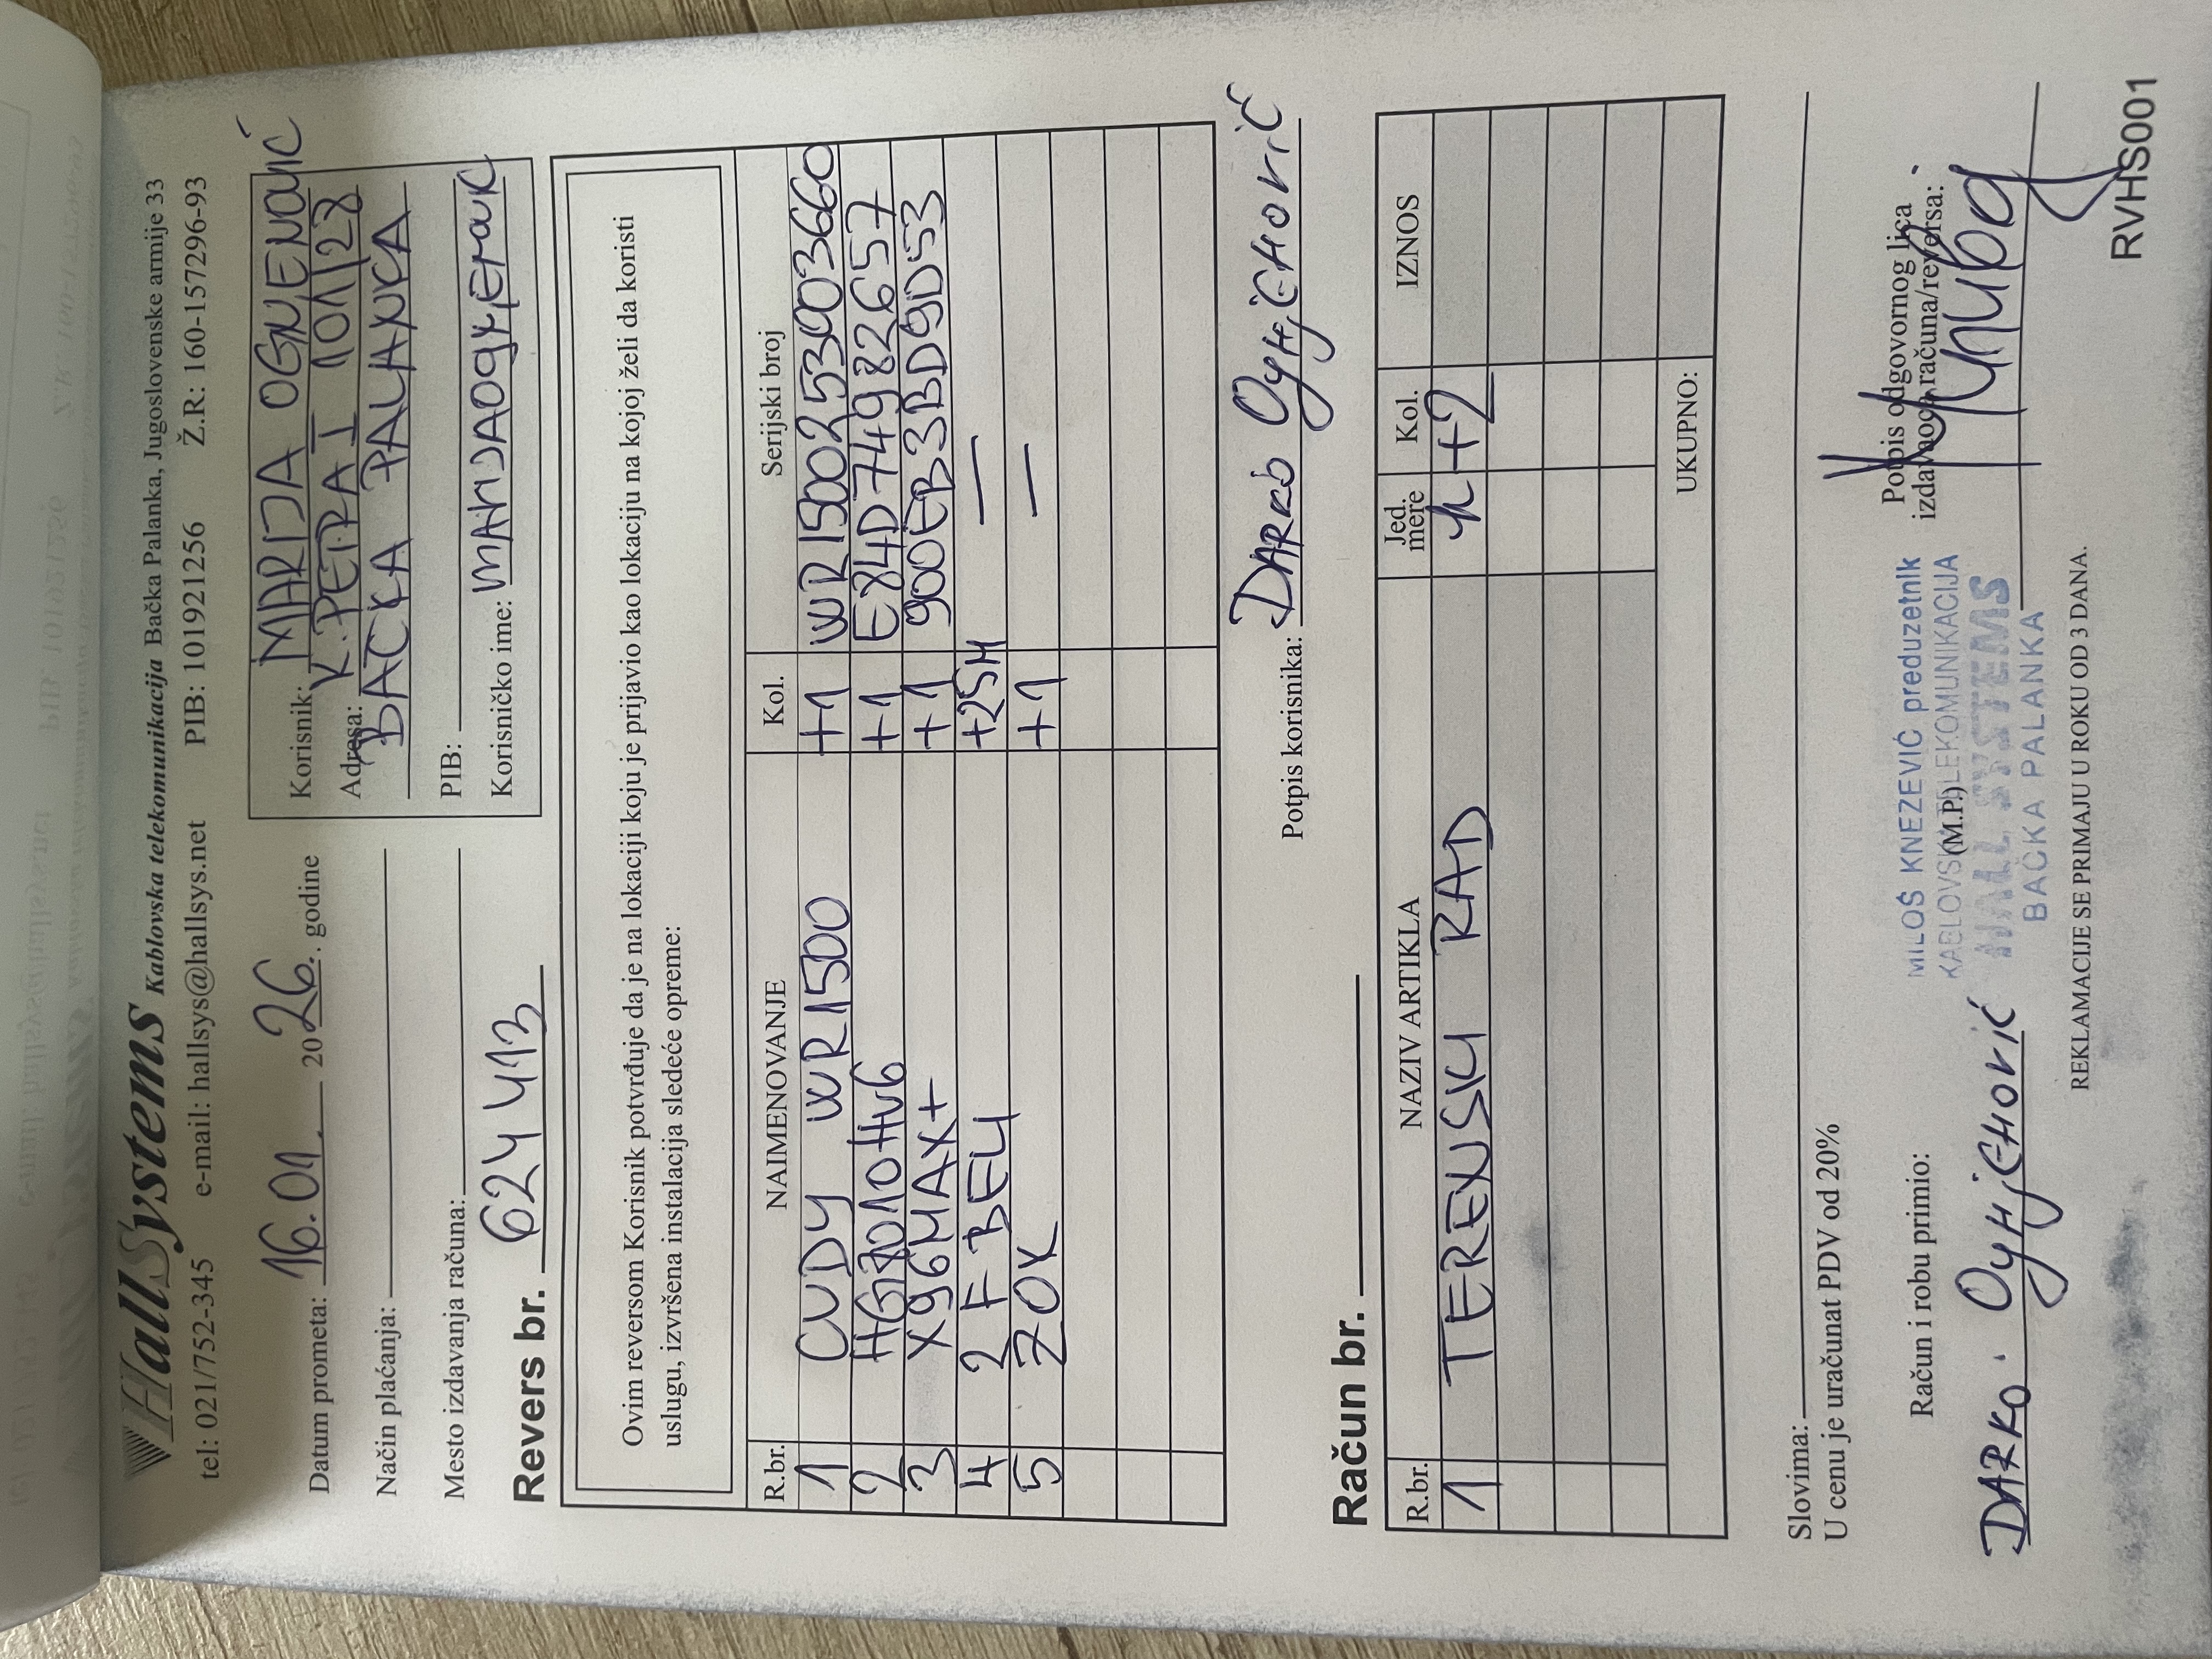 HallSystems Kablovska telekomunikacija Bačka Palanka, Jugoslovenske armije 33
tel: 021/752-345 e-mail: hallsys@hallsys.net PIB: 101921256 Ž.R: 160-157296-93
Datum prometa: 16.01. 2026. godine
Način plaćanja:
Mesto izdavanja računa:
Korisnik: MARIJA OGNJENOVIĆ
Adresa: K. PETRA I 101/28
BAČKA PALANKA
PIB:
Korisničko ime:
Revers br. 624413
Ovim reversom Korisnik potvrđuje da je na lokaciji koju je prijavio kao lokaciju na kojoj želi da koristi
uslugu, izvršena instalacija sledeće opreme:
R.br. NAIMENOVANJE Kol. Serijski broj
1 CUDY WR1500 +1
2 +1 E84D74982657
3 X96MAX+ +1 900EB3BD9D53
4 2F BELI +25M —
5 ZOK +1 —
Potpis korisnika: DARKO
Račun br.
R.br. NAZIV ARTIKLA Jed. mere Kol. IZNOS
1 TERENSKI RAD h +2
UKUPNO:
Slovima:
U cenu je uračunat PDV od 20%
Račun i robu primio:
DARKO
MILOŠ KNEZEVIĆ preduzetnik
KABLOVSKA TELEKOMUNIKACIJA
(M.P.)
HALL SYSTEMS
BAČKA PALANKA
Potpis odgovornog lica
izdavaoca računa/reversa:
REKLAMACIJE SE PRIMAJU U ROKU OD 3 DANA.
RVHS001